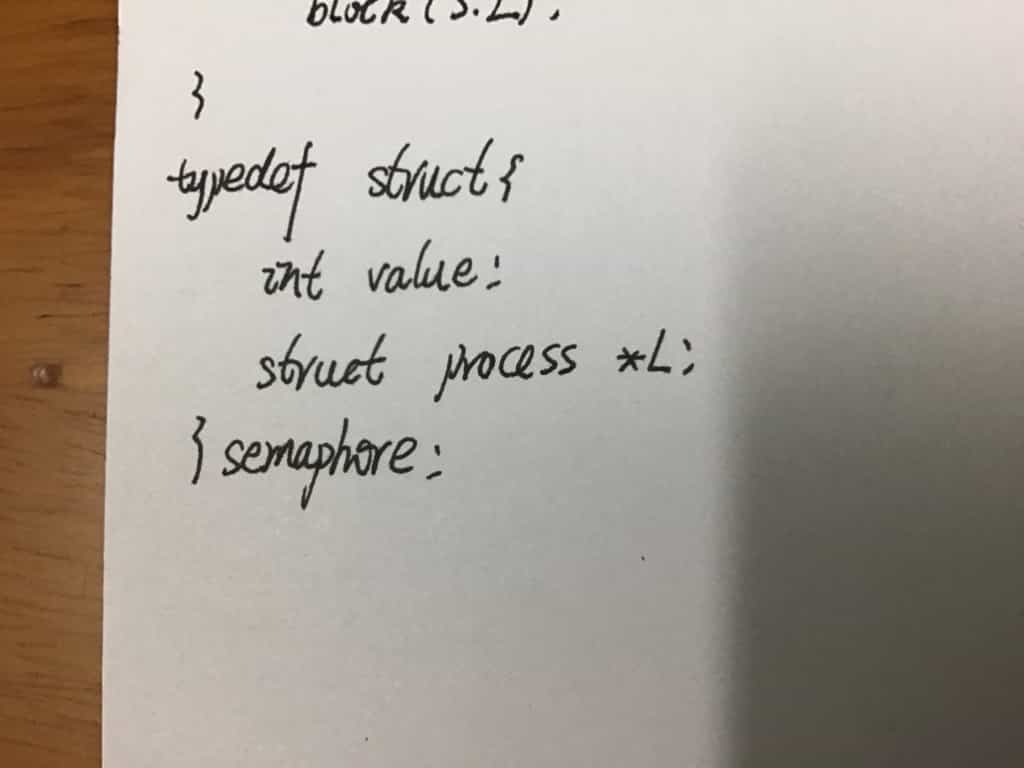 block(S.L);
}
typedef struct{
int value;
struct process *L;
} semaphore;